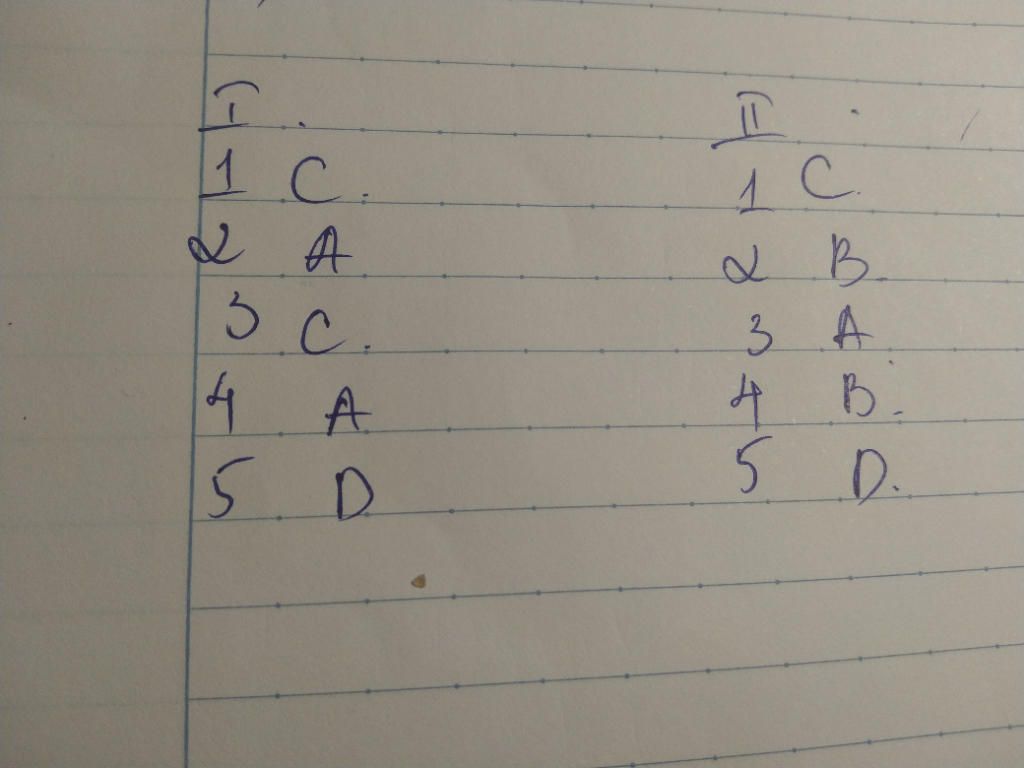 I.
1 C.
2 A
3 C.
4 A
5 D
II
1 C.
2 B.
3 A
4 B.
5 D.